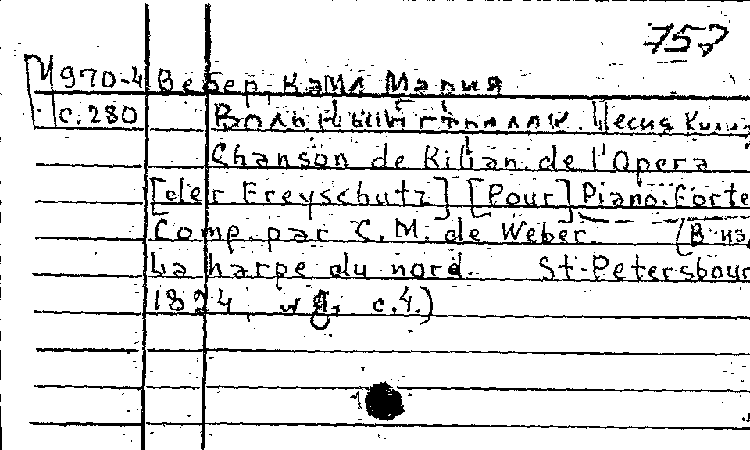 757
М970-4 Вебер, Карл Мария
с.280 Вольный стрелок. Песня Килиа
Chanson de Kilian de l'Opera
[der Freyschutz] [Pour] Piano-Forte
Comp. par C. M. de Weber. (В из
La harpe du nord. St-Petersbour
1824, с.4.)